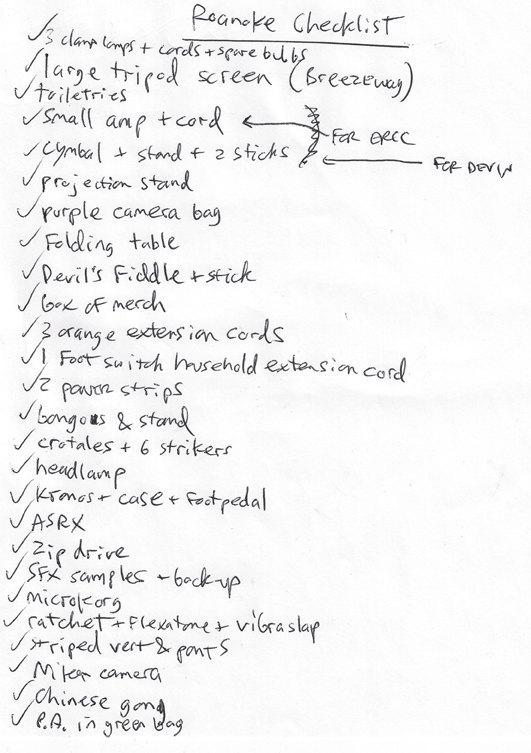 Roanoke Checklist
✓ 3 clamp lamps + cords + spare bulbs
✓ large tripod screen (Breezeway)
✓ toiletries
✓ small amp + cord
FOR ERCC
✓ cymbal + stand + 2 sticks
FOR DEVIN
✓ projection stand
✓ purple camera bag
✓ Folding table
✓ Devil's Fiddle + stick
✓ box of merch
✓ 3 orange extension cords
✓ 1 Foot switch household extension cord
✓ 2 power strips
✓ bongos & stand
✓ crotales + 6 strikers
✓ headlamp
✓ Kronos + case + Footpedal
✓ ASRX
✓ Zip drive
✓ SFX samples + back-up
✓ microkorg
✓ ratchet + Flexatone + vibraslap
✓ striped vert & pants
✓ camera
✓ Chinese gong
✓ P.A. in green bag